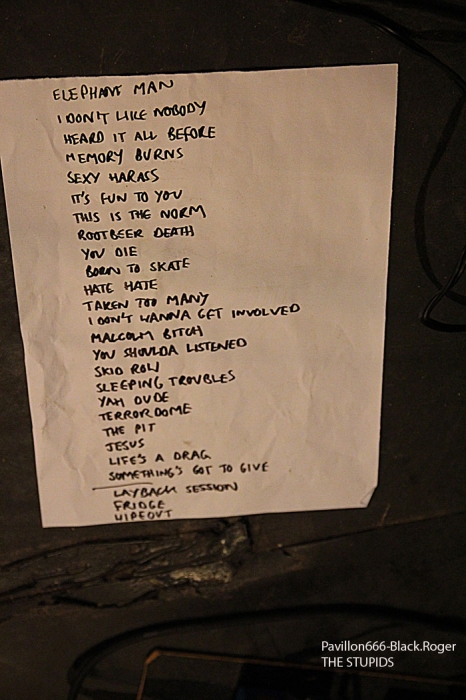 ELEPHANT MAN
I DON'T LIKE NOBODY
HEARD IT ALL BEFORE
MEMORY BURNS
SEXY HARASS
IT'S FUN TO YOU
THIS IS THE NORM
ROOTBEER DEATH
YOU DIE
BORN TO SKATE
HATE HATE
TAKEN TOO MANY
I DON'T WANNA GET INVOLVED
MALCOLM BITCH
YOU SHOULDA LISTENED
SKID ROW
SLEEPING TROUBLES
YAH DUDE
TERRORDOME
THE PIT
JESUS
LIFE'S A DRAG
SOMETHING'S GOT TO GIVE
LAYBACK SESSION
FRIDGE
WIPEOUT
Pavillon666-Black.Roger
THE STUPIDS